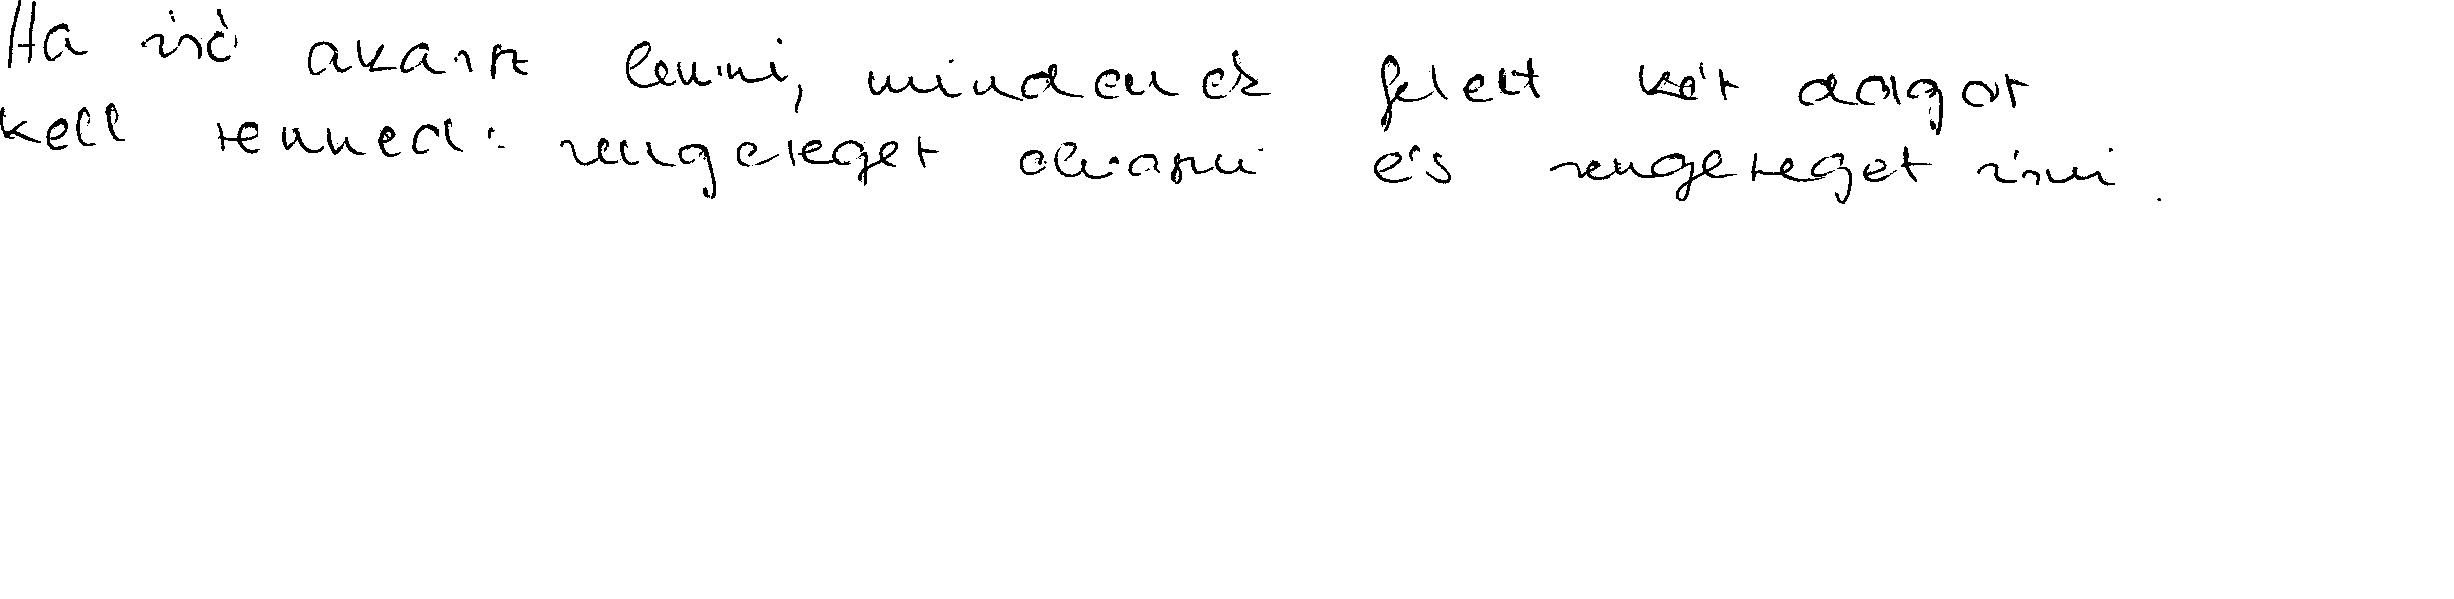 Ha író akarsz lenni, mindenek felett két dolgot
kell tenned: rengeteget olvasni és rengeteget írni.